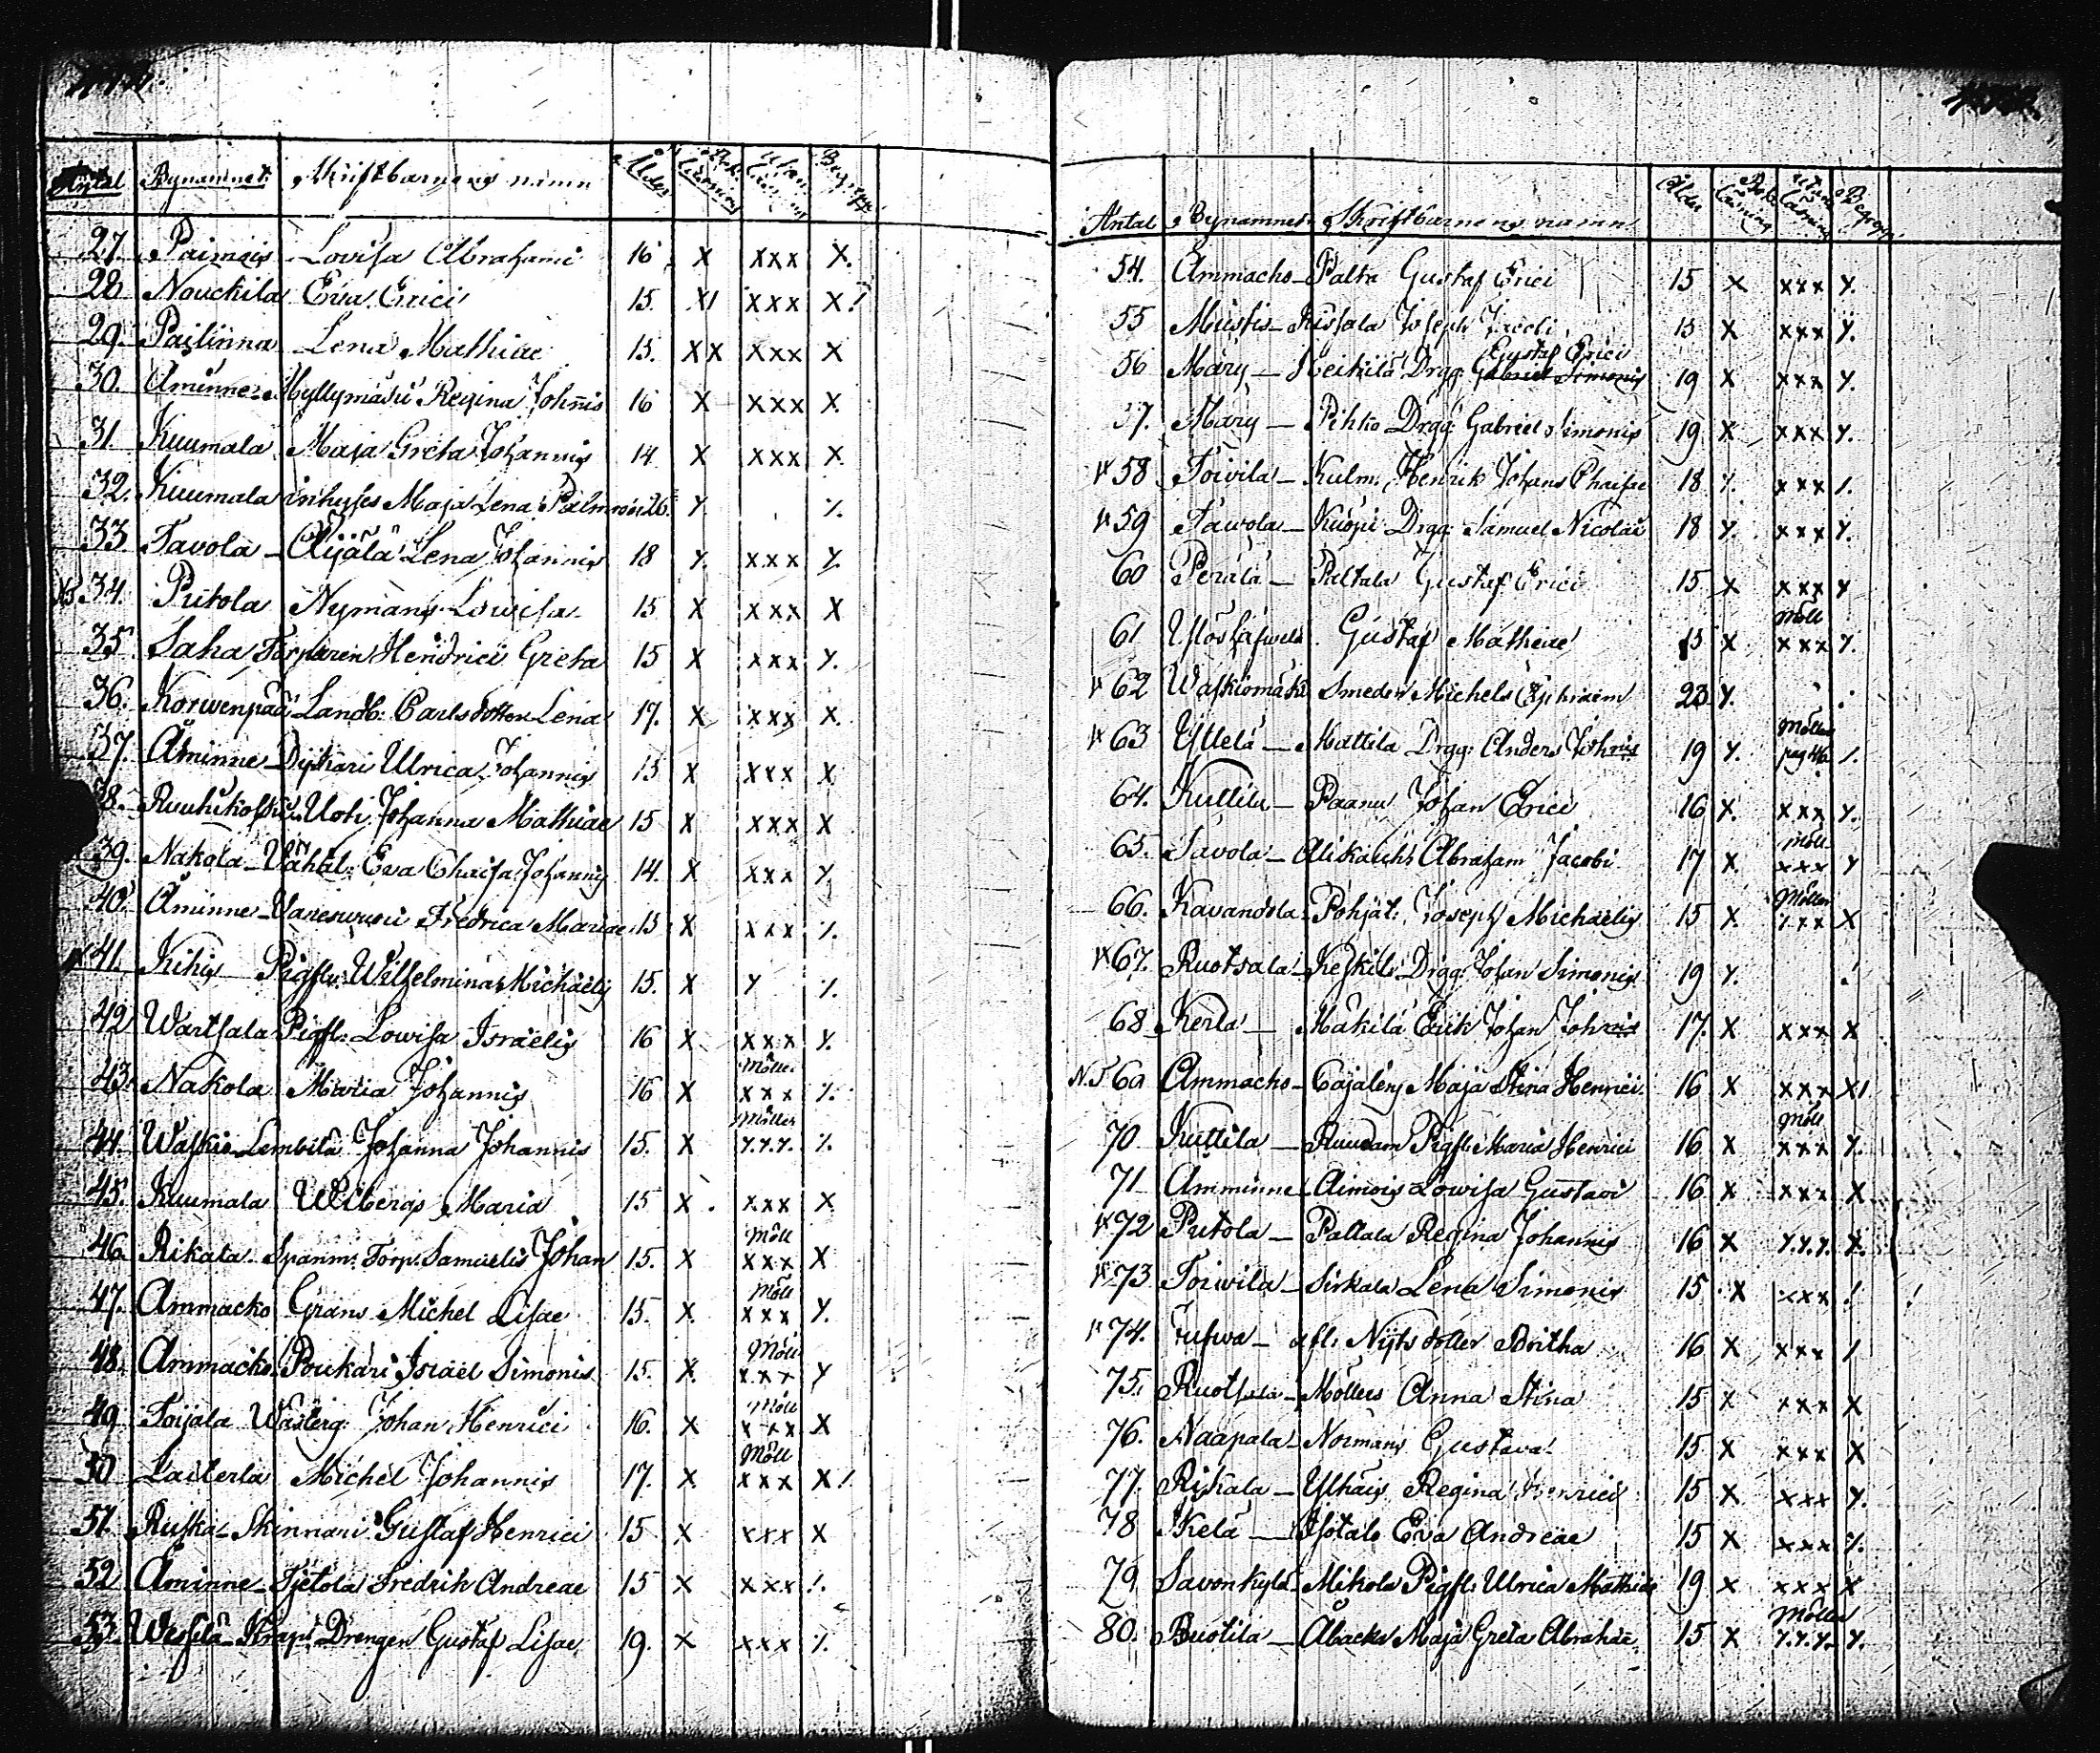 Antal Bynamnet Skriftbarnens namn Ålder Bok Läsning Utan Läsning Begrepp
27. Paimais Lovisa Abrahami 16 X XXX X.
28 Nouckila Eva Erici 15. XI XXX X!
29. Pailinna Lena Mathiae 15. XX XXX X
30. Åminne Myllymäki Regina Johñis 16 X XXX X
31. Kuumala Maja Greta Johannis 14 X XXX X
32. Kuumala inhyses Maja Lena 26. Y. Y.
33 Tavola - Äijälä Lena Johannis 18 Y. XXX Y.
34. Pritola Nymans Lowisa 15 X XXX X
35 Saha Torparen Hendrici Greta 15 X XXX Y.
36. Korwenpää Landb. Carlsdotter Lena 17. X XXX X
37. Åminne - Dijkari Ulrica Johannis 15 X XXX X
38. Ruuhikoski Uoti Johanna Mathiae 15 X XXX X
39. Nakola - Vähäl: Eva Chaisa Johannis 14. X XXX Y
40. Åminne - Fredrica Mariae 15 X XXX Y.
41. Kihis Pigfl: Wilhelmina Michaelis 15. X Y Y.
42 Wartsala Pigfl: Lowisa Israelis 16 X XXX Y.
43. Nakola Maria Johannis 16 X Möll. XXX Y.
44. Waskio Lembilä Johanna Johannis 15. X Möller Y.Y.Y. Y.
45. Kuumala Ulbergs Maria 15 X XXX X
46. Rikala Spanm: Torp. Samuelis Johan 15. X Möll XXX X
47. Ammacko Grans Michel Lisae 15. X Möll XXX Y.
48. Ammacko Poukari Israel Simonis 15. X Möll XXX Y
49 Toijala Wasterg: Johan Henrici 16. X Möll XXX X
50 Laiterla Michel Johannis 17. X Möll XXX X!
51 Ruska - Skinnari Gustaf Henrici 15 X XXX X
52 Åminne - Tjetola Fredrik Andreae 15 X XXX !.
53. Drengen Gustaf Lisae 19. X XXX Y.
Antal Bynamnet Skriftbarnens namn Ålder Bok Läsning Utan Läsning Begrepp
54. Ammacko - Palta Gustaf Erici 15 X XXX Y.
55 Joseph Jacobi 15 X XXX Y.
56 Märy - Heikilä Drgg: Gustaf Erici Gabriel Simonis 19 X XXX Y.
57. Märy - Pihko Drgg: Gabriel Simonis 19 X XXX Y.
58 Toivila - Kulm: Henrik Johans Chaisae 18 Y. XXX Y.
59 Tawola - Kuopi Drgg: Samuel Nicolai 18 Y. XXX Y.
60 Perälä - Paltala Gustaf Erici 15 X XXX Y
61 Gustaf Mathiae 15 X Möll XXX Y.
62 Waskiomäki Smeden Michels Ephraim 23 Y.
63 Yllelä - Mattila Drgg: Anders Johñis 19 Y. Möller pag 46 Y.
64. Kuttila - Paanu Johan Erici 16 X. XXX Y.
65. Savola - Alikauchs Abraham Jacobi 17 X. Möll XXX Y
66. Kavandola - Pohjäl: Joseph Michaelis 15 X Möller XXX X
67. Ruotsala - Keskil: Drgg: Johan Simonis 19 Y.
68 Kerla - Mäkilä Erik Johan Johñis 17. X XXX X
N.T 69 Ammacko - Cajalens Maja Stina Henrici 16 X XXX XI
70 Kuttila - Pigfl: Maria Henrici 16 X Möll XXX Y.
71 Åmminne - Aimois Lowisa Gustavi 16 X XXX X
72 Pritola - Pallala Regina Johannis 16 X Y.Y.Y. X.
73 Toiwila - Sirkala Lena Simonis 15 X XXX !
74. Nijts dotter Britha 16 X XXX !
75. Ruotsala - Möllers Anna Stina 15 X XXX X
76. Naapala - Normans Gustava 15 X XXX X
77. Rikala - Ylhäis Regina Henrici 15 X XXX Y.
78 Kelä - Isotalo Eva Andreae 15 X XXX Y.
79 Savonkylä Mikola Pigfl: Ulrica Mathiae 19 X XXX X
80. Åbacka Maja Greta Abrahae 15 X Möller Y.Y.Y. Y.